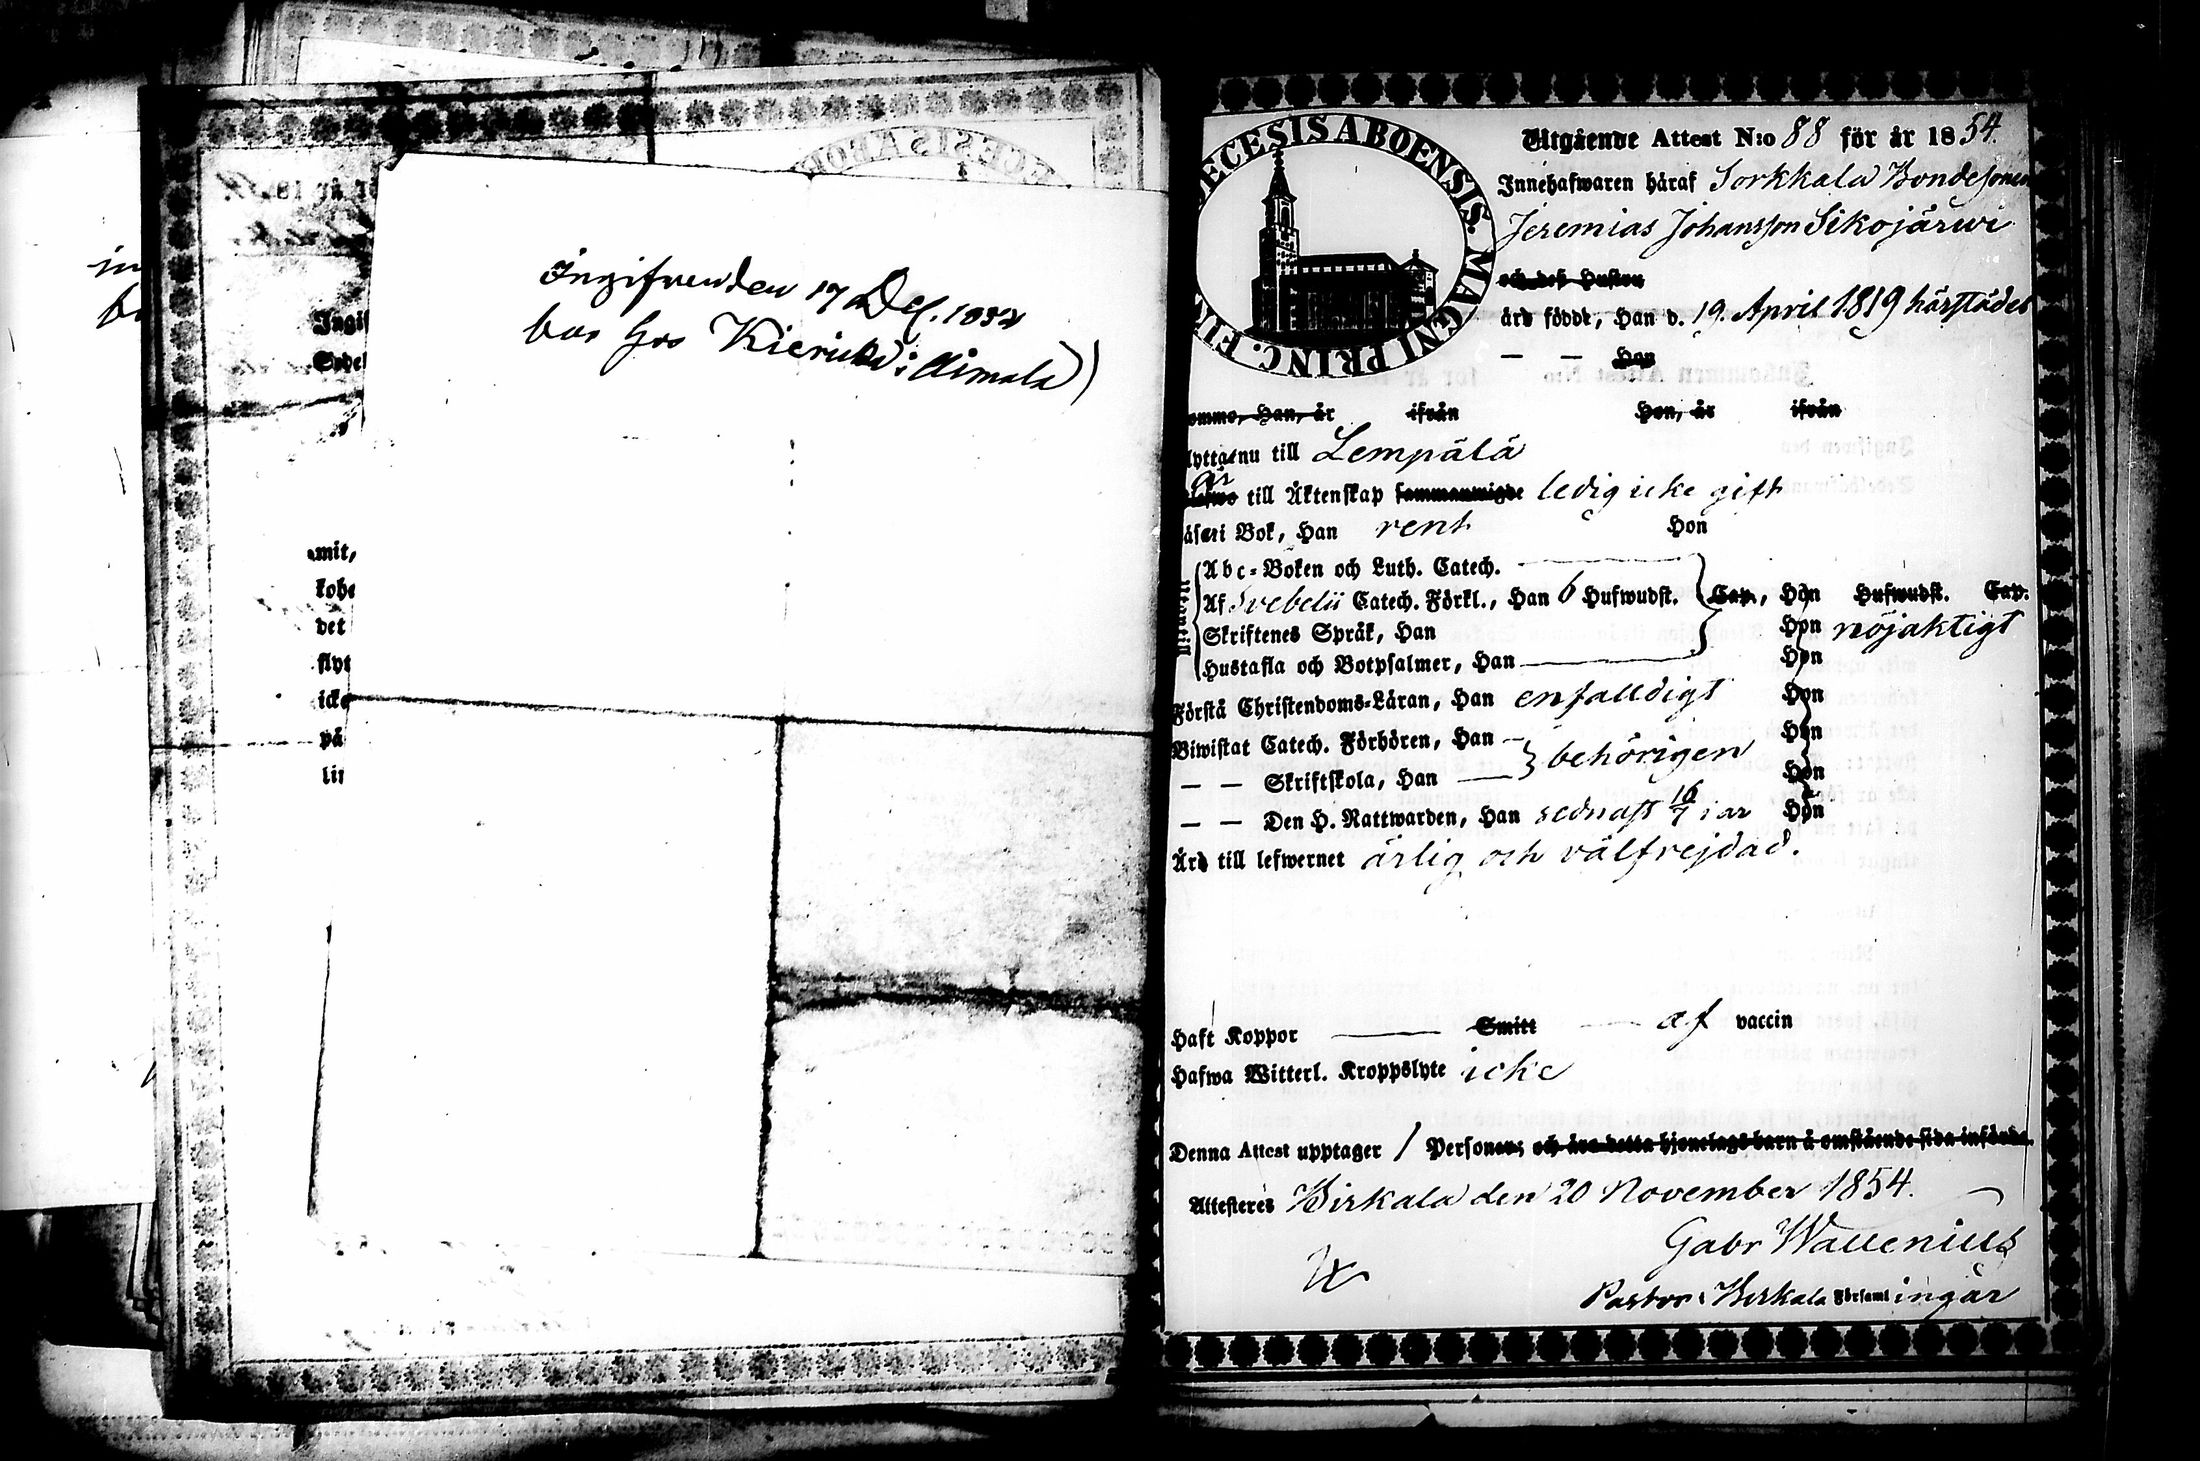 Ingifven den 17 Dec. 1854
bor hos Kierikka i Aimala)
mit,
kohe
det
flyt
icke
på
lit
DECESIS ABOENSIS. MAGNI PRINC. FIN
Utgående Attest N:o 88 för år 1854.
Innehafwaren häraf Sorkkala Bondesonen
Jeremias Johansson Sikojärwi
och dess Hustru
ärо född, Han d. 19. April 1819 härstädes
— — Hon
omma, Han, år ifrån Hon, år ifrån
lytta nu till Lempälä
är
till Äktenskap sammanwigde ledig icke gift
äser i Bok, Han rent Hon
Abc-Boken och Luth. Catech.
Af Svebelii Catech. Förkl., Han 6 Hufwudst. Cap., Hon Hufwudst. Cap.
Skriftenes Språk, Han Hon nöjaktigt
Hustafla och Botpsalmer, Han Hon
Förstå Christendoms-Läran, Han enfalldigt Hon
Biwistat Catech. Förhören, Han behörigen Hon
— — Skriftskola, Han Hon
— — Den H. Nattwarden, Han sednast 16/7 i år Hon
Äro till lefwernet ärlig och välfrejdad.
Haft Koppor Smitt af vaccin
Hafwa Witterl. Kroppslyte icke
Denna Attest upptager 1 Personer; och äro detta hjonelags barn å omstående sida införde.
Attesteres Birkala den 20 November 1854.
Gabr Wallenius
Pastor i Birkala Församl ingar